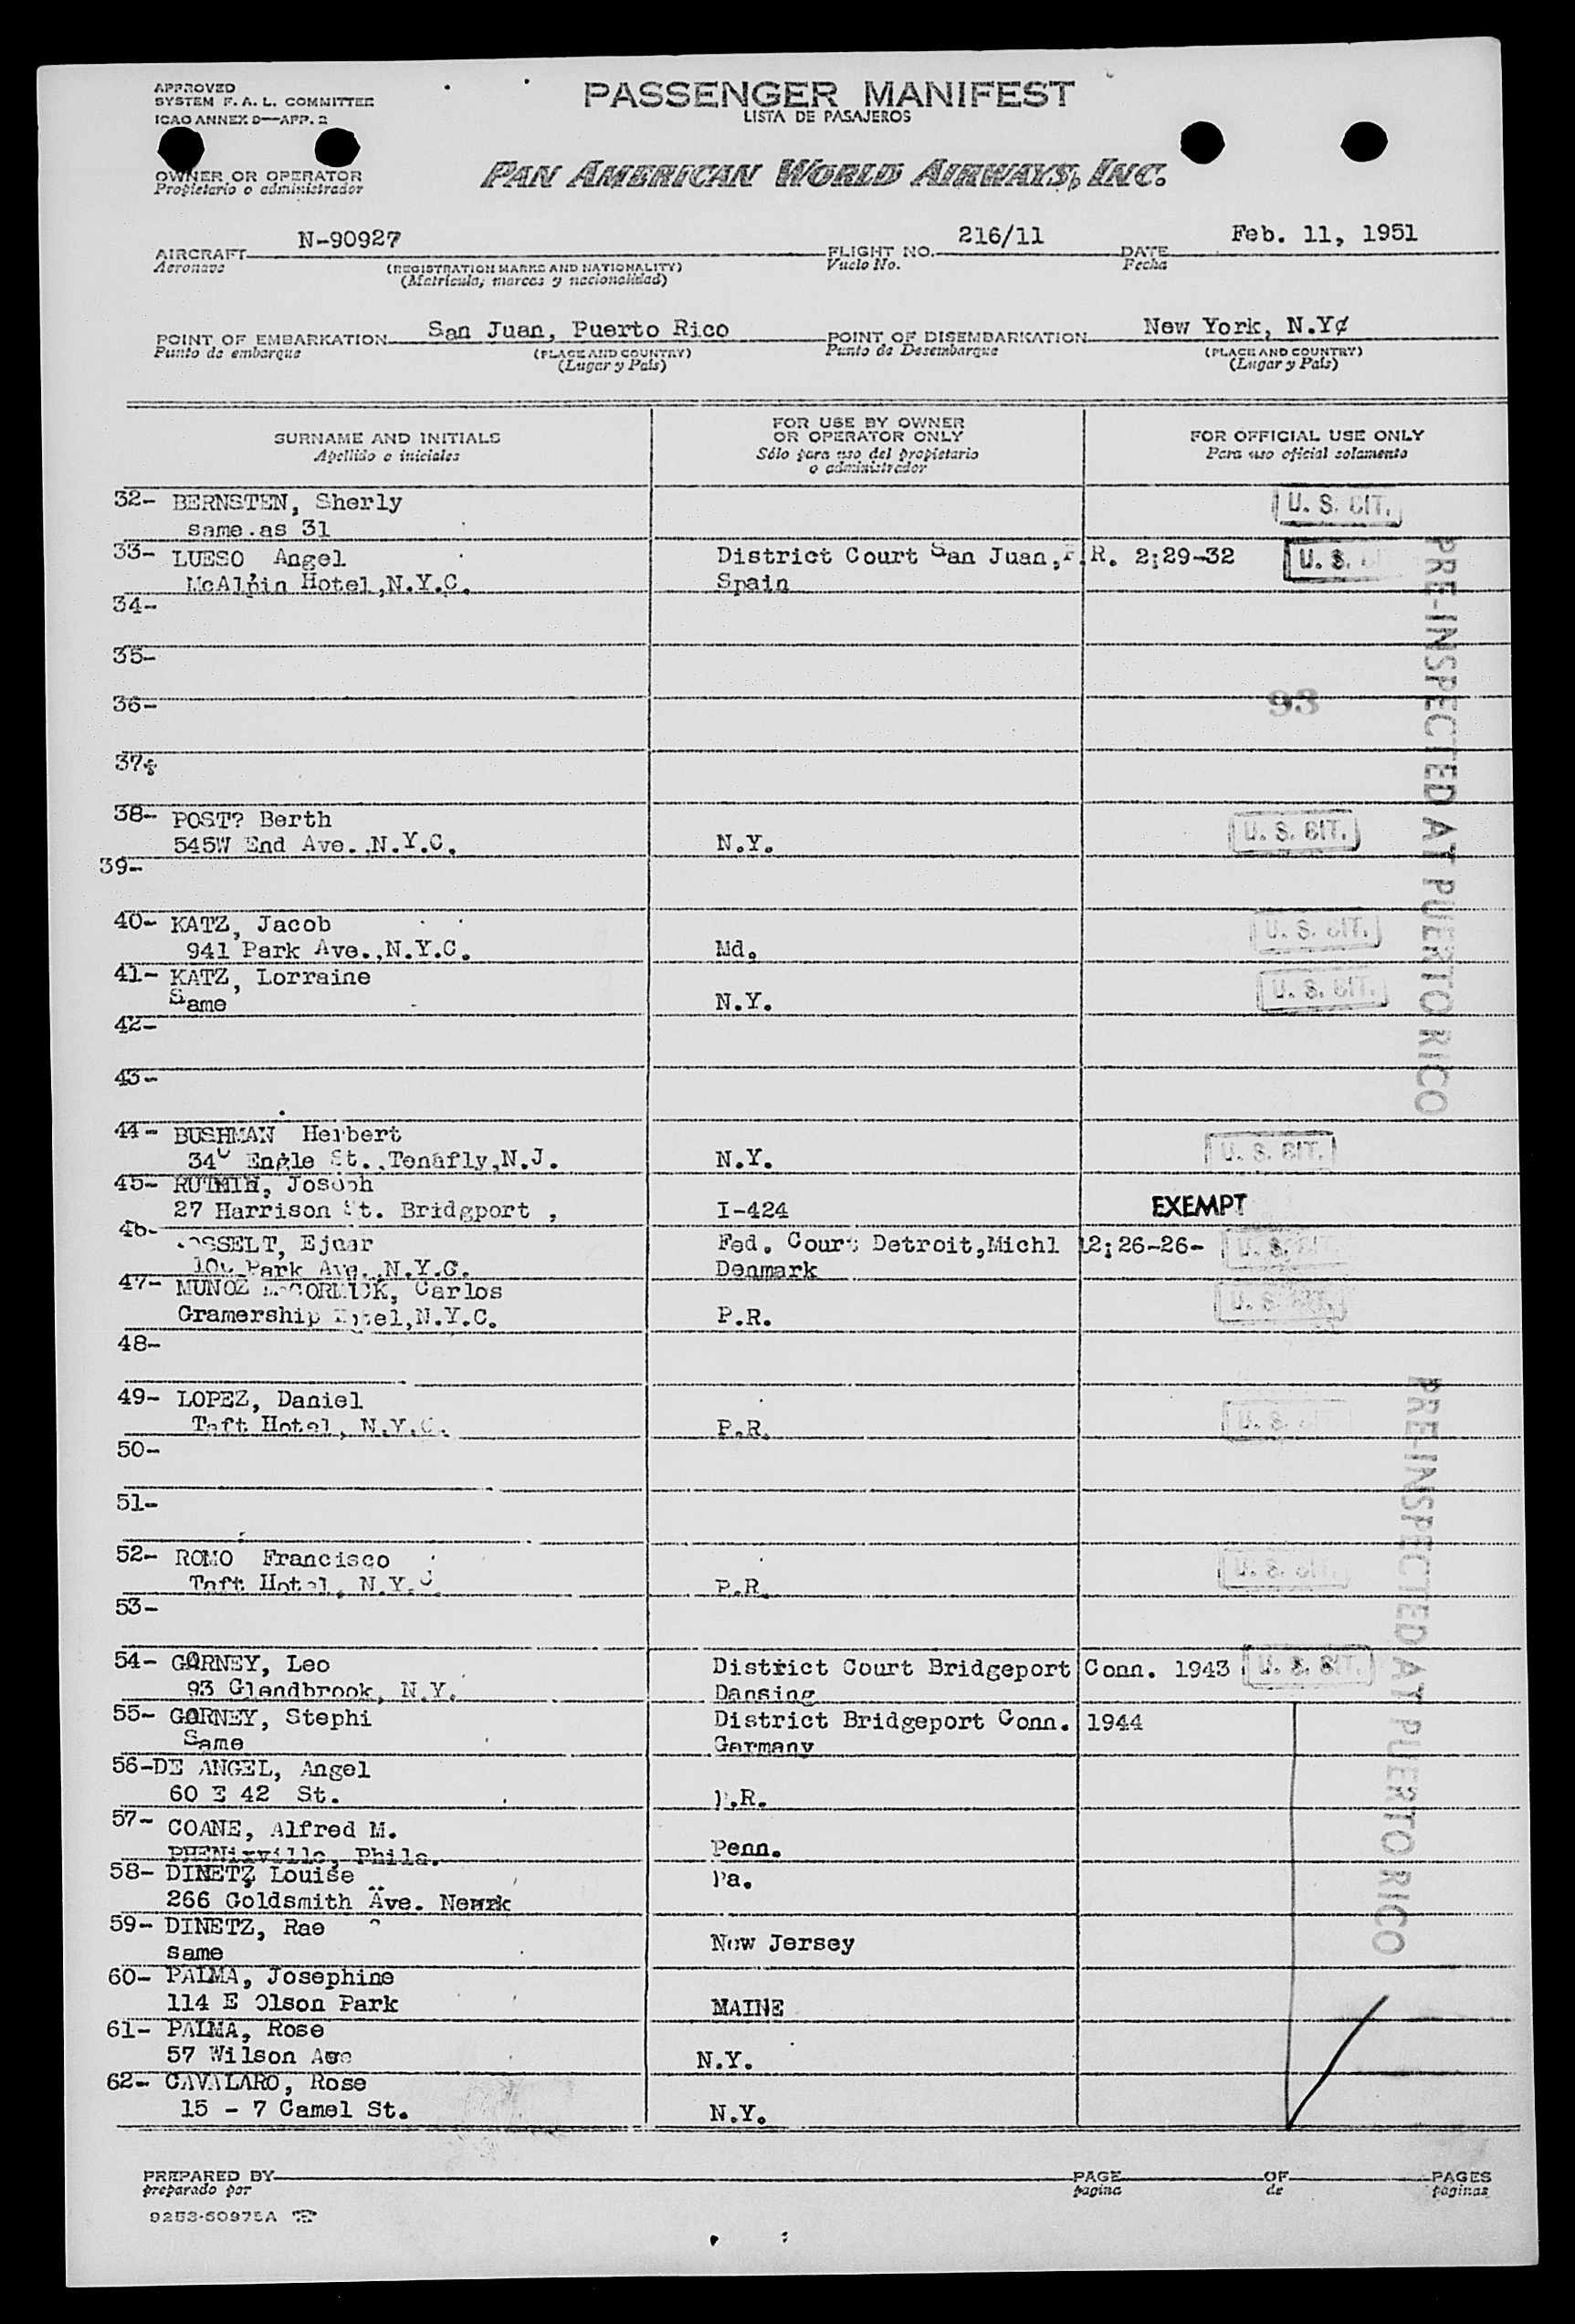 APPROVED
SYSTEM F. A. L. COMMITTEE
ICAO ANNEX 9—APP. 2
PASSENGER MANIFEST
LISTA DE PASAJEROS
OWNER OR OPERATOR
Propietario o administrador
PAN AMERICAN WORLD AIRWAYS, INC.
AIRCRAFT N-90927 FLIGHT NO. 216/11 DATE Feb. 11, 1951
Aeronave (REGISTRATION MARKS AND NATIONALITY) Vuelo No. Fecha
(Matrícula, marcas y nacionalidad)
POINT OF EMBARKATION San Juan, Puerto Rico POINT OF DISEMBARKATION New York, N.Y¢
Punto de embarque (PLACE AND COUNTRY) Punto de Desembarque (PLACE AND COUNTRY)
(Lugar y País) (Lugar y País)
SURNAME AND INITIALS
Apellido e iniciales
FOR USE BY OWNER
OR OPERATOR ONLY
Sólo para uso del propietario
o administrador
FOR OFFICIAL USE ONLY
Para uso oficial solamente
32- BERNSTEN, Sherly U. S. CIT.
same.as 31
33- LUESO, Angel District Court San Juan,P.R. 2;29-32 U. S.
McAlpin Hotel,N.Y.C. Spain
34-
35-
36- 93
37-
38- POST? Berth U. S. CIT.
545W End Ave.,N.Y.C. N.Y.
39-
40- KATZ, Jacob U. S. CIT.
941 Park Ave.,N.Y.C. Md.
41- KATZ, Lorraine U. S. CIT.
Same N.Y.
42-
43-
44- BUSHMAN Herbert U. S. CIT.
Engle St.,Tenafly,N.J. N.Y.
45- Joseph
27 Harrison St. Bridgport , I-424 EXEMPT
46- Ejnar Fed. Court Detroit,Michl 12;26-26- U. S.
Park Ave.,N.Y.C. Denmark
47- MUNOZ McCORMICK, Carlos U. S. CIT.
Gramership Hotel,N.Y.C. P.R.
48-
49- LOPEZ, Daniel U. S.
Taft Hotel, N.Y.C. P.R.
50-
51-
52- ROMO Francisco U. S. CIT.
Taft Hotel, N.Y.C P.R.
53-
54- GORNEY, Leo District Court Bridgeport Conn. 1943 U. S. CIT.
93 Glendbrook, N.Y. Dansing
55- GORNEY, Stephi District Bridgeport Conn. 1944
Same Germany
56-DE ANGEL, Angel
60 E 42 St. P.R.
57- COANE, Alfred M.
PHENixville, Phila. Penn.
58- DINETZ Louise Pa.
266 Goldsmith Ave. Newrk
59- DINETZ, Rae
same New Jersey
60- PALMA, Josephine
114 E Olson Park MAINE
61- PALMA, Rose
57 Wilson Ave N.Y.
62- CAVALARO, Rose
15 - 7 Camel St. N.Y.
PRE-INSPECTED AT PUERTO RICO
PRE-INSPECTED AT PUERTO RICO
PREPARED BY PAGE OF PAGES
preparado por pagina de paginas
9253-60975A